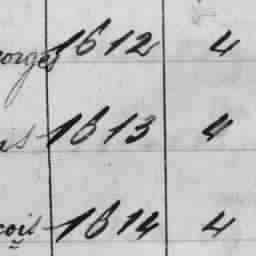 orges 1612 4
is 1613 4
çois 1614 4